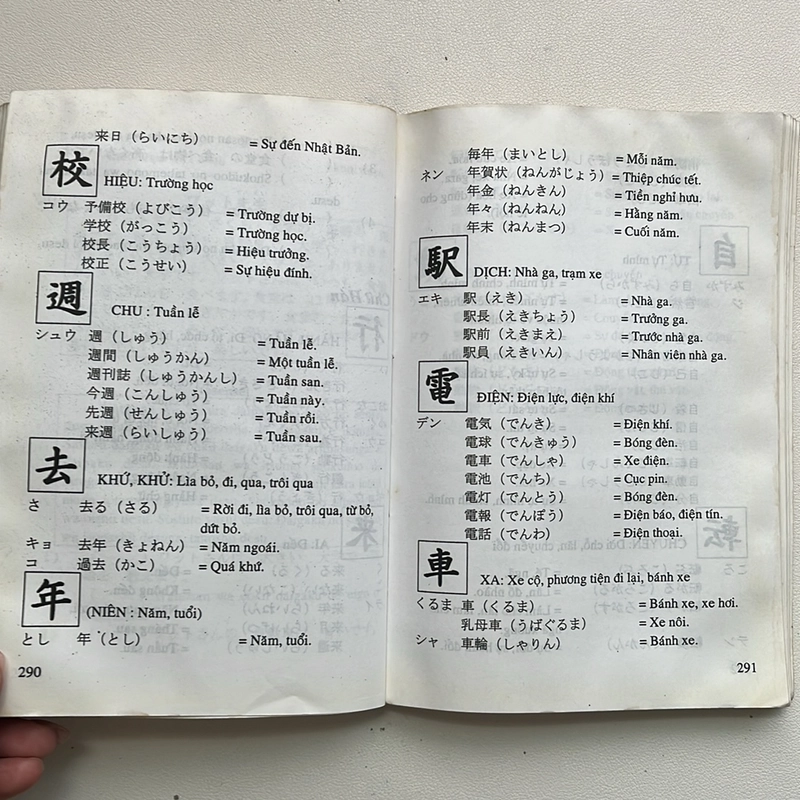 来日（らいにち） = Sự đến Nhật Bản.
校 HIỆU: Trường học
コウ 予備校（よびこう） = Trường dự bị.
学校（がっこう） = Trường học.
校長（こうちょう） = Hiệu trưởng.
校正（こうせい） = Sự hiệu đính.
週 CHU : Tuần lễ
シュウ 週（しゅう） = Tuần lễ.
週間（しゅうかん） = Một tuần lễ.
週刊誌（しゅうかんし） = Tuần san.
今週（こんしゅう） = Tuần này.
先週（せんしゅう） = Tuần rồi.
来週（らいしゅう） = Tuần sau.
去 KHỨ, KHỬ: Lìa bỏ, đi, qua, trôi qua
さ 去る（さる） = Rời đi, lìa bỏ, trôi qua, từ bỏ,
dứt bỏ.
キョ 去年（きょねん） = Năm ngoái.
コ 過去（かこ） = Quá khứ.
年 (NIÊN : Năm, tuổi)
とし 年（とし） = Năm, tuổi.
290
毎年（まいとし） = Mỗi năm.
ネン 年賀状（ねんがじょう） = Thiệp chúc tết.
年金（ねんきん） = Tiền nghỉ hưu.
年々（ねんねん） = Hằng năm.
年末（ねんまつ） = Cuối năm.
駅 DỊCH: Nhà ga, trạm xe
エキ 駅（えき） = Nhà ga.
駅長（えきちょう） = Trưởng ga.
駅前（えきまえ） = Trước nhà ga.
駅員（えきいん） = Nhân viên nhà ga.
電 ĐIỆN: Điện lực, điện khí
デン 電気（でんき） = Điện khí.
電球（でんきゅう） = Bóng đèn.
電車（でんしゃ） = Xe điện.
電池（でんち） = Cục pin.
電灯（でんとう） = Bóng đèn.
電報（でんぽう） = Điện báo, điện tín.
電話（でんわ） = Điện thoại.
車 XA: Xe cộ, phương tiện đi lại, bánh xe
くるま 車（くるま） = Bánh xe, xe hơi.
乳母車（うばぐるま） = Xe nôi.
シャ 車輪（しゃりん） = Bánh xe.
291